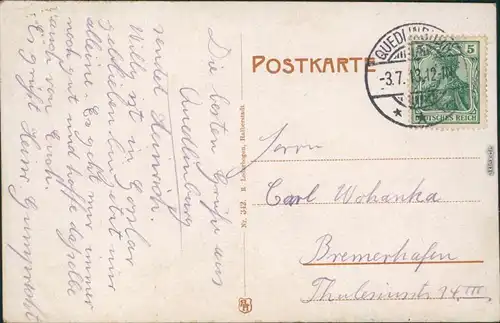 POSTKARTE
QUEDLINBURG
-3.7.13.12-1N.
5
DEUTSCHES REICH
Die besten Grüße aus
Quedlinburg
sendet Heinrich.
Willy ist in Goslar
geblieben bin jetzt nur
alleine. Es geht mir immer
noch gut und hoffe dasselbe
auch von Euch.
Es grüßt Heinr.
Nr. 342. R. Lederbogen, Halberstadt.
Herrn
Carl Wohanka
Bremerhafen
Thulesiusstr 14 III